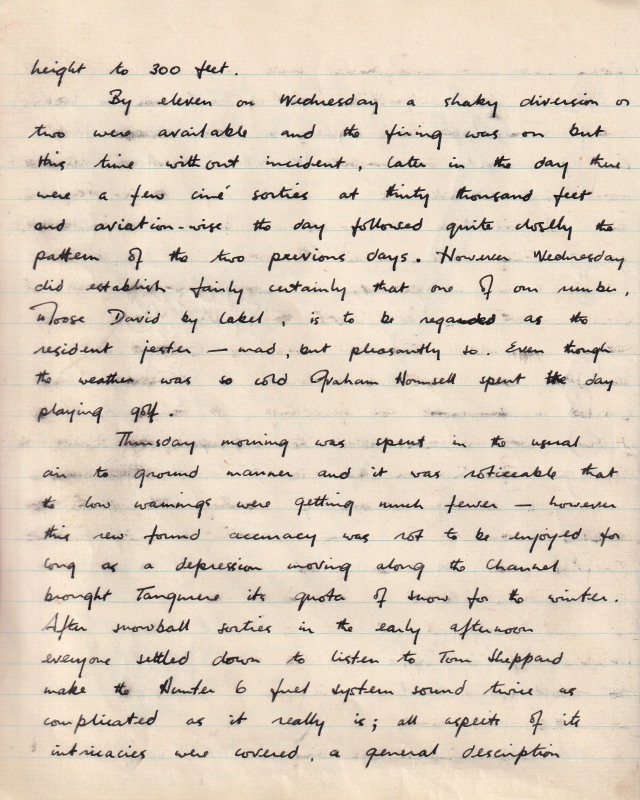 height to 300 feet.
By eleven on Wednesday a shaky diversion or
two were available and the firing was on but
this time without incident, later in the day there
were a few ciné sorties at thirty thousand feet
and aviation-wise the day followed quite closely the
pattern of the two previous days. However Wednesday
did establish fairly certainly that one of our number,
Moose David by label, is to be regarded as the
resident jester — mad, but pleasantly so. Even though
the weather was so cold Graham Hounsell spent the day
playing golf.
Thursday morning was spent in the usual
air to ground manner and it was noticeable that
the low warnings were getting much fewer — however
this new found accuracy was not to be enjoyed for
long as a depression moving along the Channel
brought Tangmere its quota of snow for the winter.
After snowball sorties in the early afternoon
everyone settled down to listen to Tom Sheppard
make the Hunter 6 fuel system sound twice as
complicated as it really is; all aspects of its
intricacies were covered, a general description